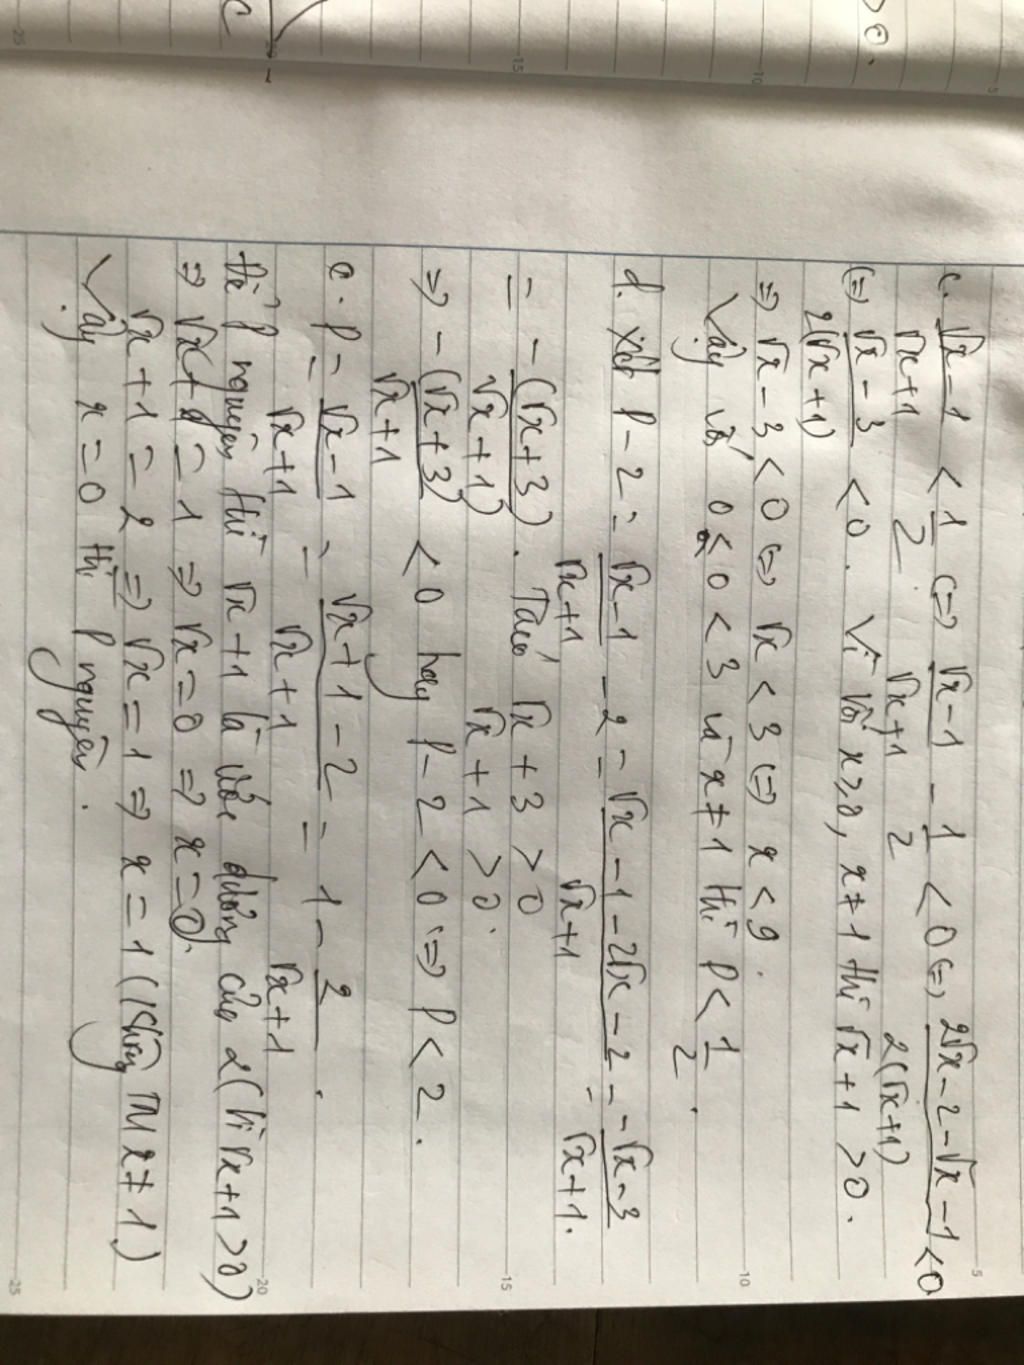 c. (√x-1)/(√x+1) < 1/2 (=) (√x-1)/(√x+1) - 1/2 < 0 (=) (2√x-2-√x-1)/(2(√x+1)) < 0
(=) (√x-3)/(2(√x+1)) < 0. Vì với x≥0, x≠1 thì √x+1 >0.
=> √x-3<0 (=) √x < 3 (=) x < 9.
Vậy với 0 ≤ 0 < 3 và x≠1 thì P < 1/2.
d. Xét P-2 = (√x-1)/(√x+1) - 2 = (√x-1-2√x-2)/(√x+1) = (-√x-3)/(√x+1).
= -(√x+3)/(√x+1). Ta có √x+3 >0
√x+1 >0.
=> -(√x+3)/(√x+1) < 0 hay P-2 < 0 => P < 2.
e. P = (√x-1)/(√x+1) = (√x+1-2)/(√x+1) = 1 - 2/(√x+1).
Để P nguyên thì √x+1 là ước dương của 2 (Vì √x+1 >0)
=> √x+1 = 1 => √x = 0 => x=0.
√x+1 = 2 => √x = 1 => x = 1 (Không TM x≠1)
Vậy x=0 thì P nguyên.
20
15
10
5
25